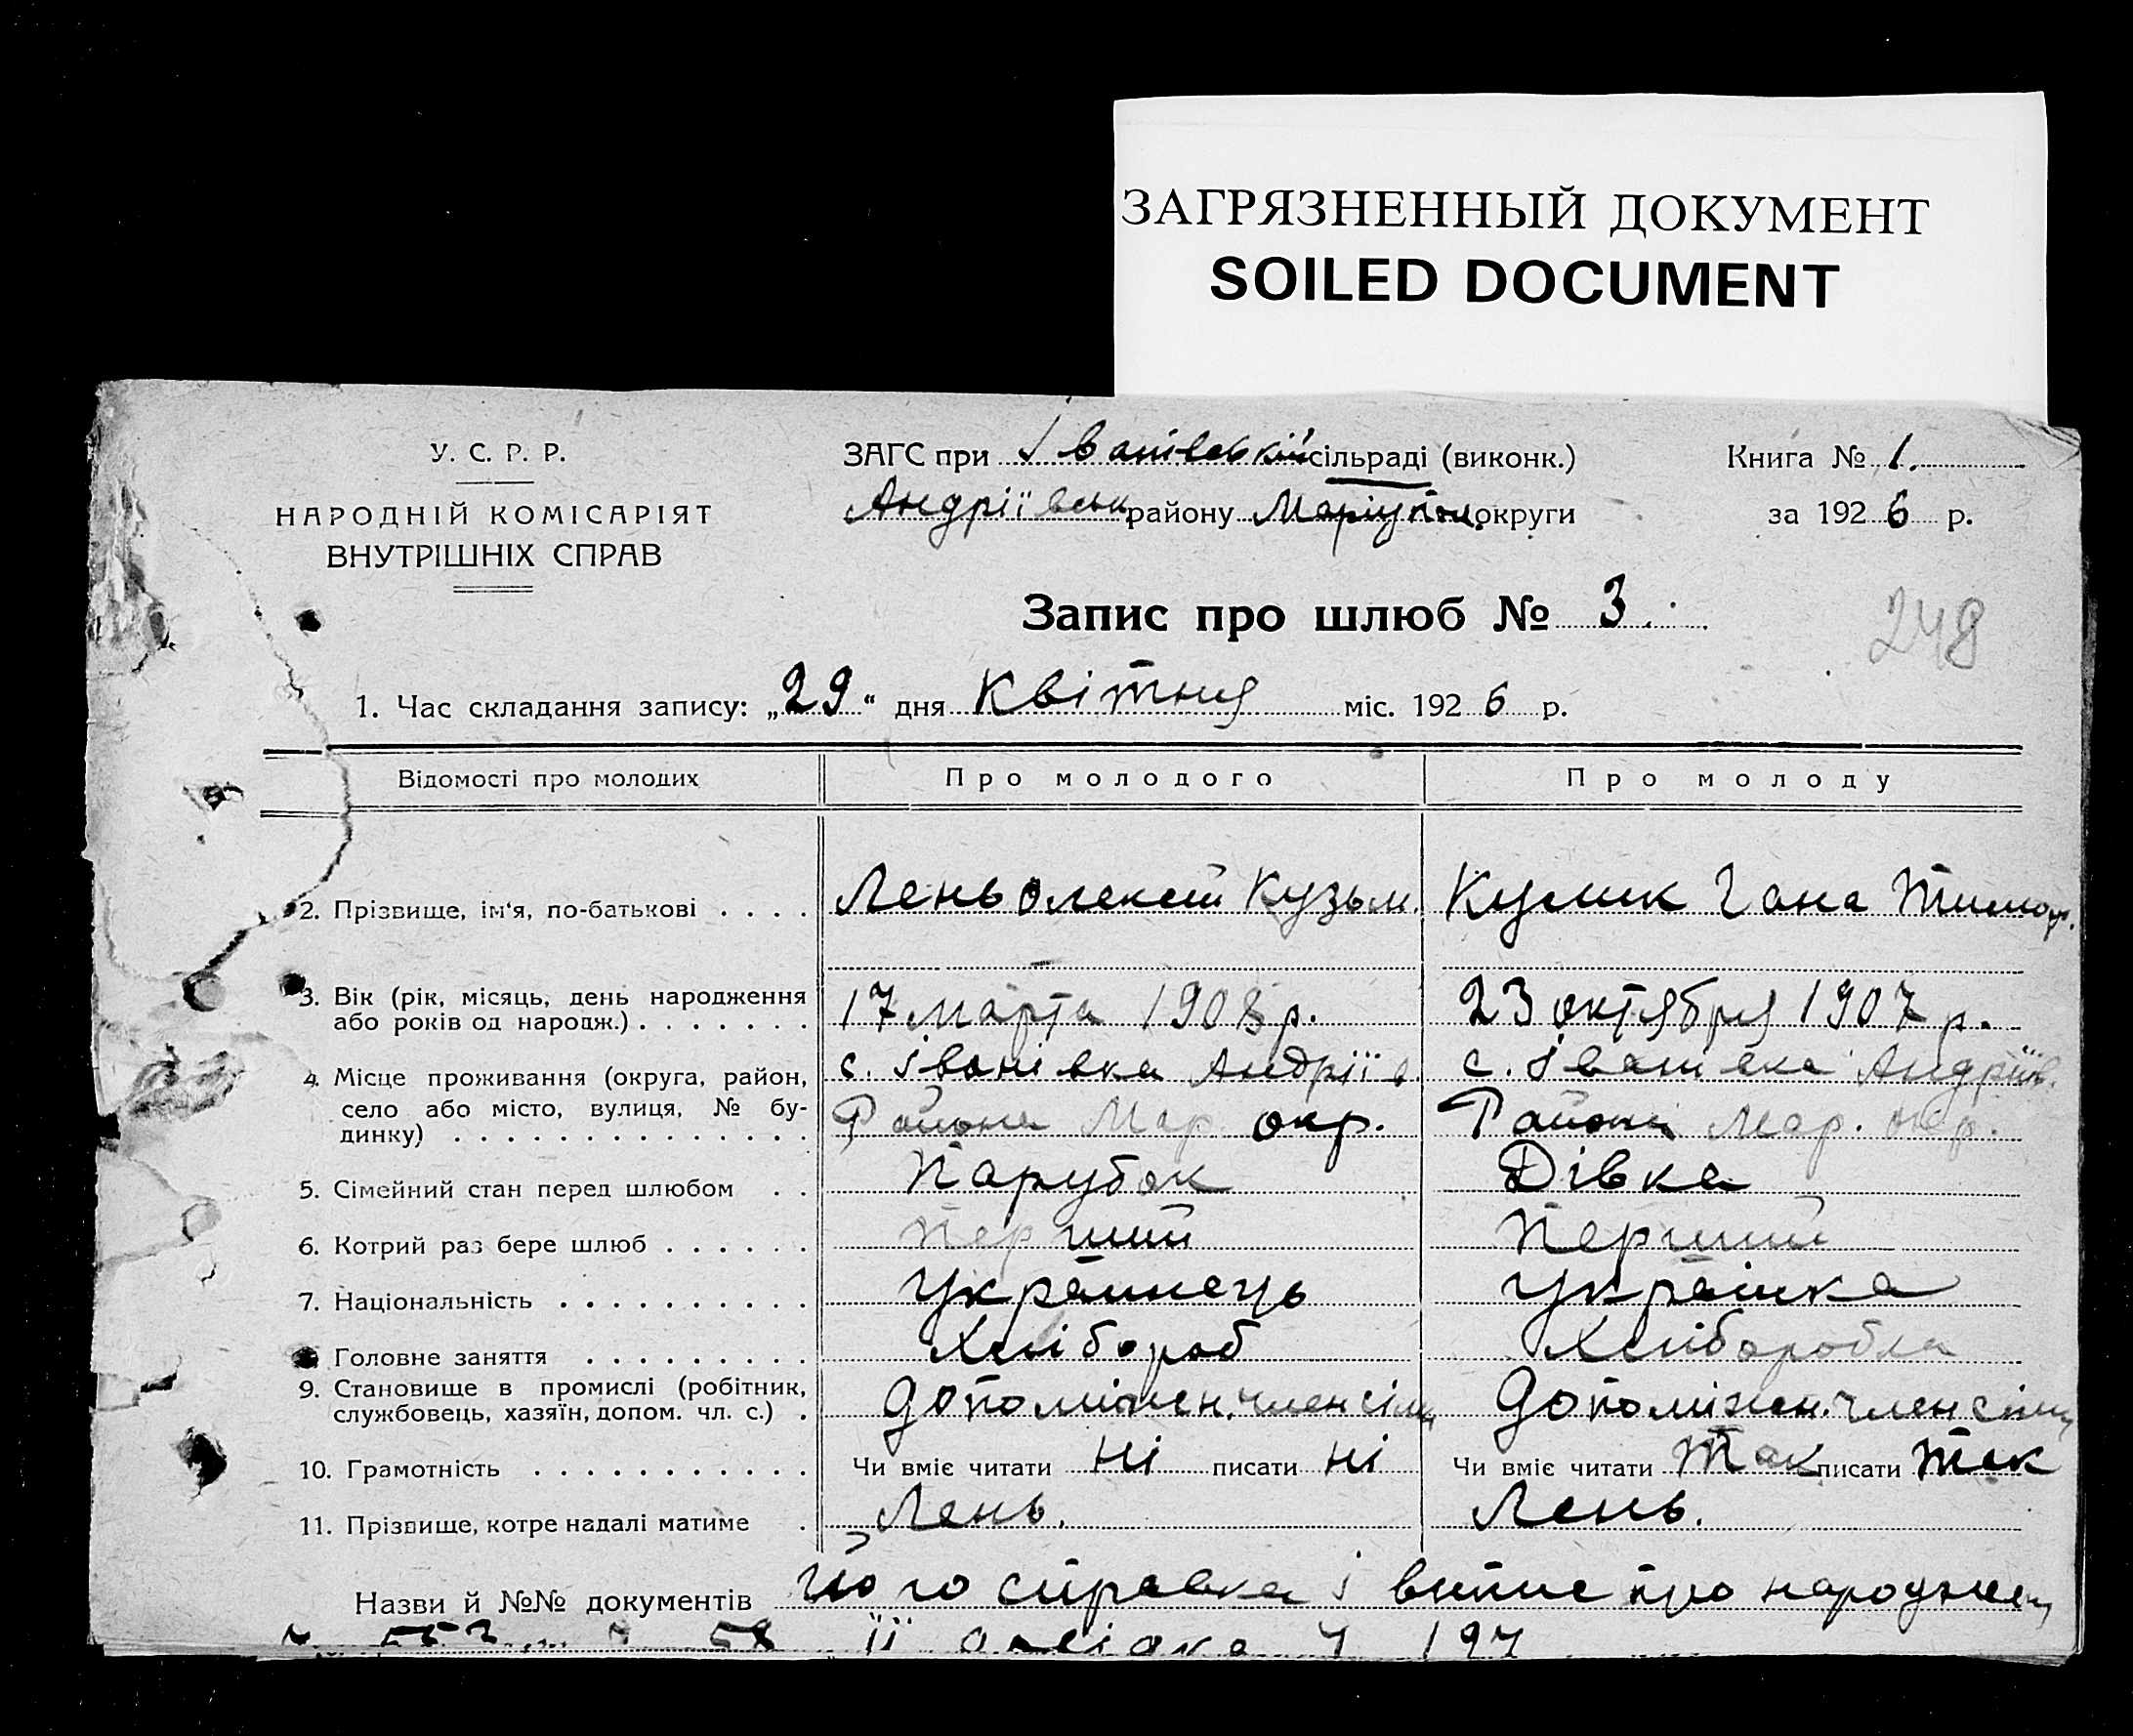 ЗАГРЯЗНЕННЫЙ ДОКУМЕНТ
SOILED DOCUMENT
У. С. Р. Р.
НАРОДНІЙ КОМІСАРІЯТ
ВНУТРІШНІХ СПРАВ
ЗАГС при Іванівській сільраді (виконк.)
Андріївськ району Маріупін. округи
Книга № 1.
за 1926 р.
Запис про шлюб № 3.
248
1. Час складання запису: „29“ дня Квітня міс. 1926 р.
Відомості про молодих Про молодого Про молоду
2. Прізвище, ім'я, по-батькові . . . . Лень Олексій Кузьм. Кулик Гана Тимоф.
3. Вік (рік, місяць, день народження
або років од народж.) . . . . . . . 17 марта 1908 р. 23 октября 1907 р.
4. Місце проживання (округа, район, с. Іванівка Андріїв с. Іванівка Андріїв.
село або місто, вулиця, № бу-
динку) . . . . . . . . . . . . . . Района Мар. окр. Района Мар. окр.
5. Сімейний стан перед шлюбом . . Парубок Дівка
6. Котрий раз бере шлюб . . . . . . Перший Перший
7. Національність . . . . . . . . . . Українець Українка
Головне заняття . . . . . . . . . Хлібороб Хліборобка
9. Становище в промислі (робітник,
службовець, хазяїн, допом. чл. с.) . Допоміжен. член сім Допоміжен. член сім
10. Грамотність . . . . . . . . . . . Чи вміє читати Ні писати Ні Чи вміє читати Так писати Так
11. Прізвище, котре надалі матиме . Лень. Лень.
Назви й №№ документів його справка і випис про народжен
її